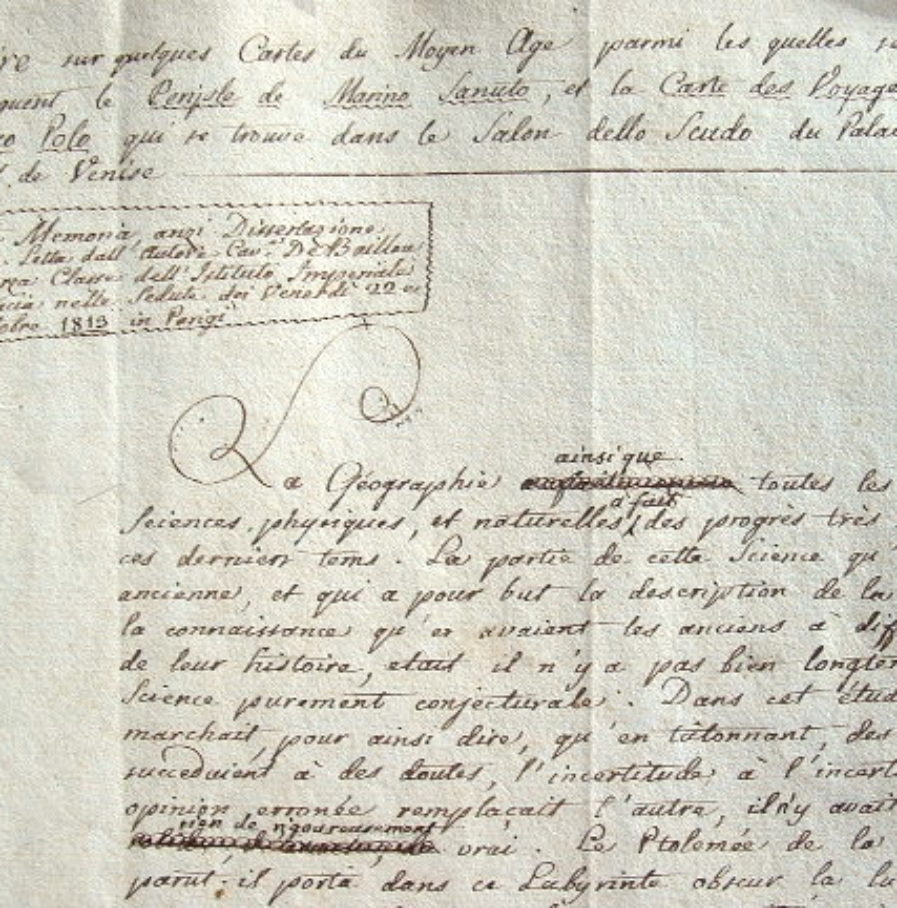 re sur quelques Cartes du Moyen Age parmi les quelles se
quent le Periple de Marino Sanuto, et la Carte des Voyage
co Polo qui se trouve dans le Salon dello Scudo du Palai
de Venise
Memoria anzi Dissertazione
Letta dall'autore Cav.r De Baillou
rza Classe dell'Istituto Imperiale
ncia nelle Sedute dei Venerdì 22 e
tobre 1813 in Parigi
ainsi que
La Géographie toutes les
à fait
Sciences physiques, et naturelles des progrès très
ces derniers tems. La partie de cette Science qu'
ancienne, et qui a pour but la description de la
la connaissance qu'en avaient les anciens à dif
de leur histoire, etait il n'y a pas bien longtem
Science purement conjecturale. Dans cet étud
marchait, pour ainsi dire, qu'en tâtonnant, des
succedaient à des doutes, l'incertitude à l'incert
opinion erronée remplaçait l'autre, il n'y avait
rien de rigoureusement
vrai. Le Ptolemée de la
parut: il porta dans ce Labyrinte obscur la lu